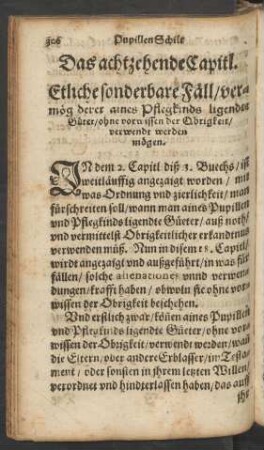 306 Pupillen Schilt
Das achtzehende Capitl.
Etliche sonderbare Fäll/ ver-
mög derer aines Pflegkinds ligendes
Güter/ ohne vorwissen der Obrigkeit/
verwendt werden
mögen.
IN dem 2. Capitl diß 3. Buechs/ ist
weitläuffig angezaigt worden / mit
was Ordnung vnd zierlichkeit/ man
fürschreiten soll/ wann man aines Pupillen
vnd Pflegkinds ligendte Güeter/ auß noth/
vnd vermittelst Obrigkeitlicher erkandtnus
verwenden müß. Nun in disem 18. Capitl/
wirdt angezaigt vnd außgeführt/ in was für
fällen/ solche alienationes vnnd verwen-
dungen/ krafft haben / obwoln sie ohne vor-
wissen der Obrigkeit beschehen.
Vnd erstlich zwar/ köñen aines Pupillen
vnd Pflegkinds ligendte Güeter/ ohne vor-
wissen der Obrigkeit/ verwendt werden/ wañ
die Eltern/ oder andere Erblasser/ im Testa-
ment / oder sonsten in jhrem letzten Willen/
verordnet vnd hindterlassen haben/ das auff